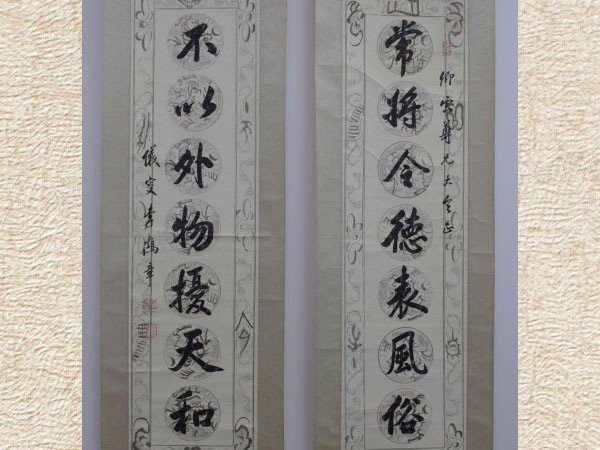 卿雲尊兄大令正
常將令德表風俗
不以外物擾天和
儀叟李鴻章